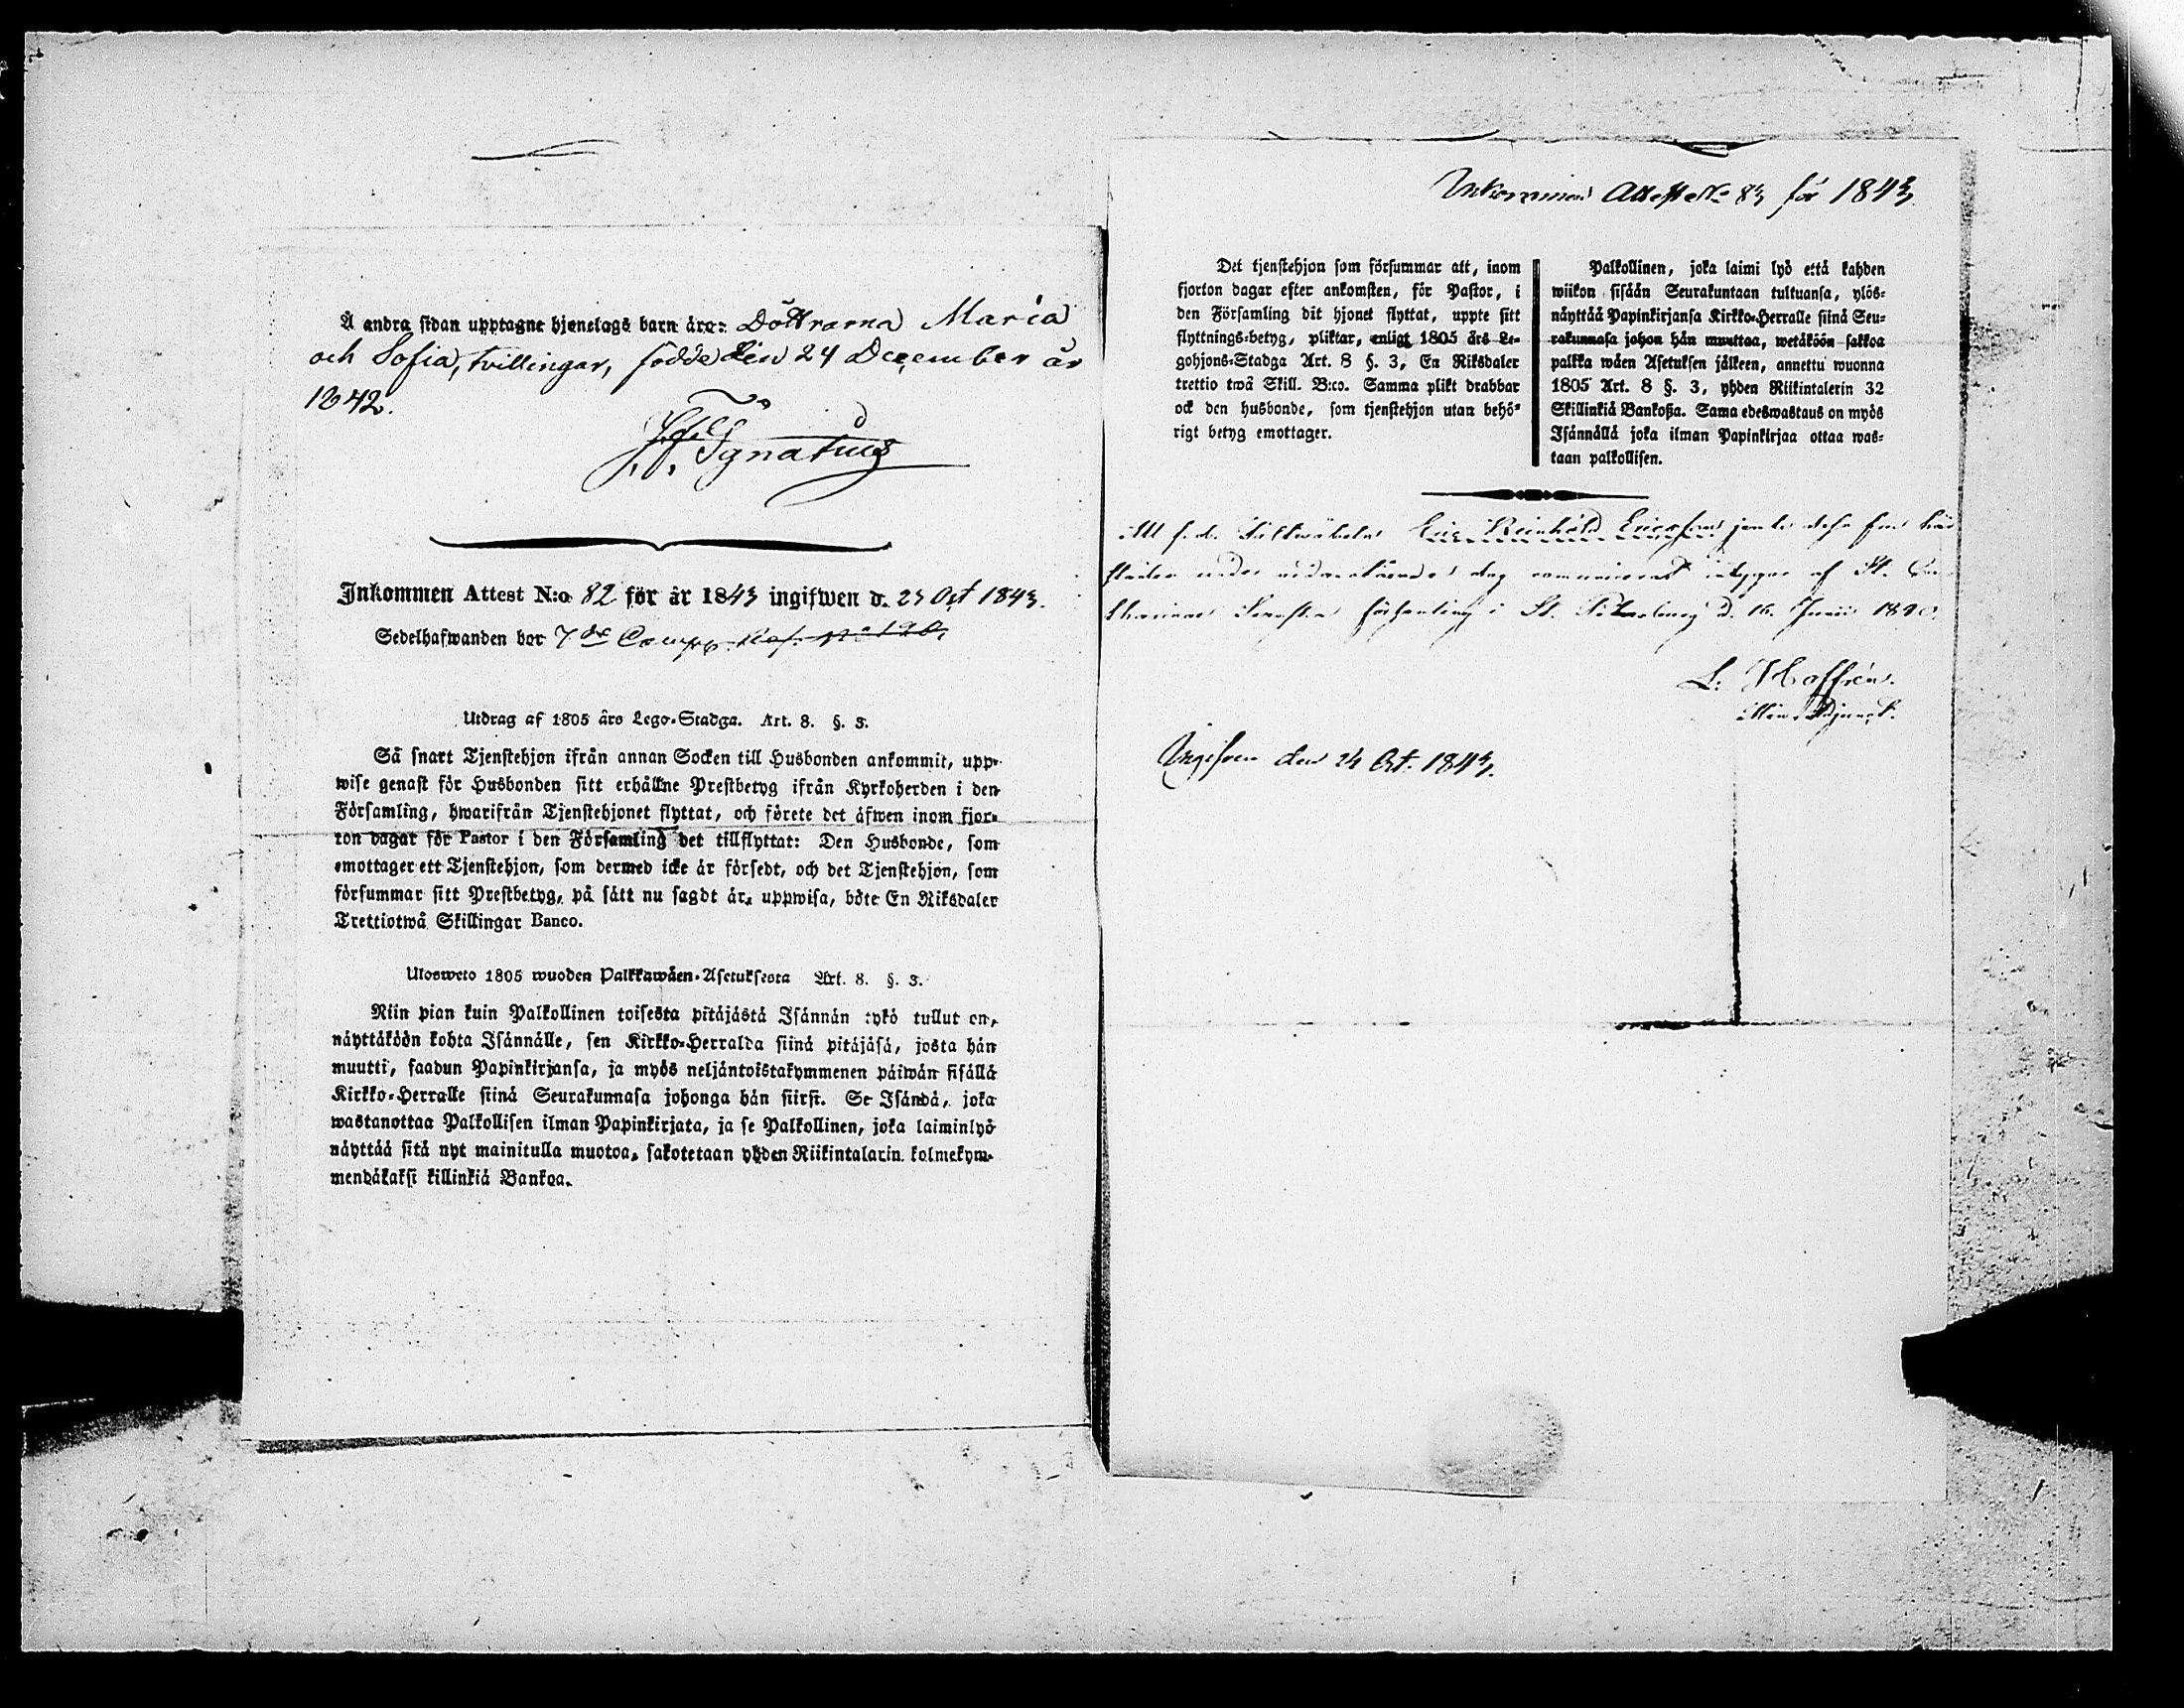 Å andra sidan upptagne hjonelags barn äro: Döttrarna Maria
och Sofia, tvillingar, födde den 24 December år
1842.
J. F. Ignatius
Inkommen Attest N:o 82 för år 1843 ingifwen d. 23 Oct 1843.
Sedelhafwanden bor 7de Comp.
Utdrag af 1805 års Lego-Stadga. Art. 8. §. 3.
Så snart Tjenstehjon ifrån annan Socken till Husbonden ankommit, upp-
wise genast för Husbonden sitt erhållne Prestbetyg ifrån Kyrkoherden i den
Församling, hwarifrån Tjenstehjonet flyttat, och förete det äfwen inom fjor-
ton dagar för Pastor i den Församling det tillflyttat: Den Husbonde, som
emottager ett Tjenstehjon, som dermed icke är försedt, och det Tjenstehjon, som
försummar sitt Prestbetyg, på sätt nu sagdt är, uppwisa, böte En Riksdaler
Trettiotwå Skillingar Banco.
Ulosweto 1805 wuoden Palkkawäen-Asetuksesta Art. 8. §. 3.
Niin pian kuin Palkollinen toisesta pitäjästä Isännän tykö tullut on,
näyttäköön kohta Isännälle, sen Kirkko-Herralda siinä pitäjäsä, josta hän
muutti, saadun Papinkirjansa, ja myös neljäntoistakymmenen päiwän sisällä
Kirkko-Herralle siinä Seurakunnasa johonga hän siirsi. Se Isändä, joka
wastanottaa Palkollisen ilman Papinkirjata, ja se Palkollinen, joka laiminlyö
näyttää sitä nyt mainitulla muotoa, sakotetaan yhden Riikintalarin kolmekym-
mendäkaksi killinkiä Bankoa.
Inkommen Attest No 83 för 1843
Det tjenstehjon som försummar att, inom
fjorton dagar efter ankomsten, för Pastor, i
den Församling dit hjonet flyttat, uppte sitt
flyttnings-betyg, pliktar, enligt 1805 års Le-
gohjons-Stadga Art. 8 §. 3, En Riksdaler
trettio twå Skill. B:co. Samma plikt drabbar
ock den husbonde, som tjenstehjon utan behö-
rigt betyg emottager.
Palkollinen, joka laimi lyö että kahden
wiikon sisään Seurakuntaan tultuansa, ylös-
näyttää Papinkirjansa Kirkko-Herralle siinä Seu-
rakunnasa johon hän muuttaa, wetäköön sakkoa
palkka wäen Asetuksen jälkeen, annettu wuonna
1805 Art. 8 §. 3, yhden Riikintalerin 32
Skillinkiä Bankoßa. Sama edeswastaus on myös
Isännällä joka ilman Papinkirjaa ottaa was-
taan palkollisen.
Att f. d. Eric Reinhold Ericsson
under dag intygar af St. Ca-
tharinæ Svenska församling i St. Petersburg d. 16. Junii 1840.
L: Hoffrén.
Adjunct.
Ingifven den 24 Oct. 1843.